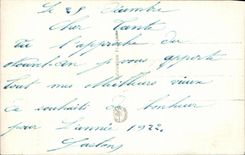 Le 28 Décembre
Chère Tante
à l'approche du
nouvel an je vous apporte
tout mes meilleurs vœux
et souhaits de bonheur
pour l'année 1922.
Gaston